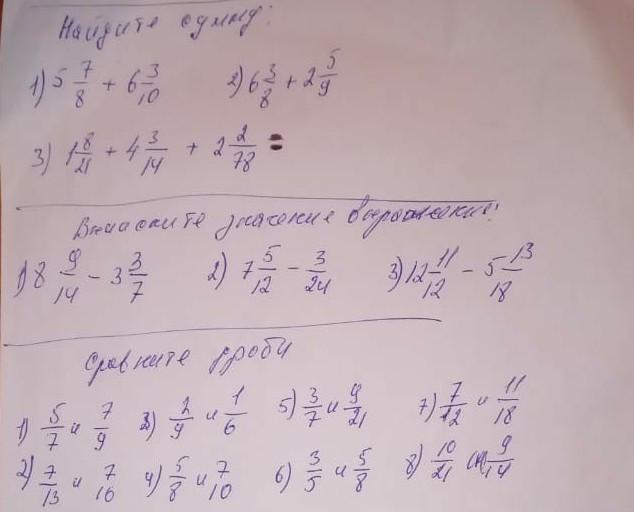 Найдите сумму:
1) 5 7/8 + 6 3/10 2) 6 3/8 + 2 5/9
3) 1 8/21 + 4 3/14 + 2 2/78 =
значение выражение:
1) 8 9/14 - 3 3/7 2) 7 5/12 - 3/24 3) 12 11/12 - 5 13/18
Сравните дроби
1) 5/7 и 7/9 3) 2/9 и 1/6 5) 3/7 и 9/21 7) 7/12 и 11/18
2) 7/13 и 7/10 4) 5/8 и 7/10 6) 3/5 и 5/8 8) 10/21 и 9/14